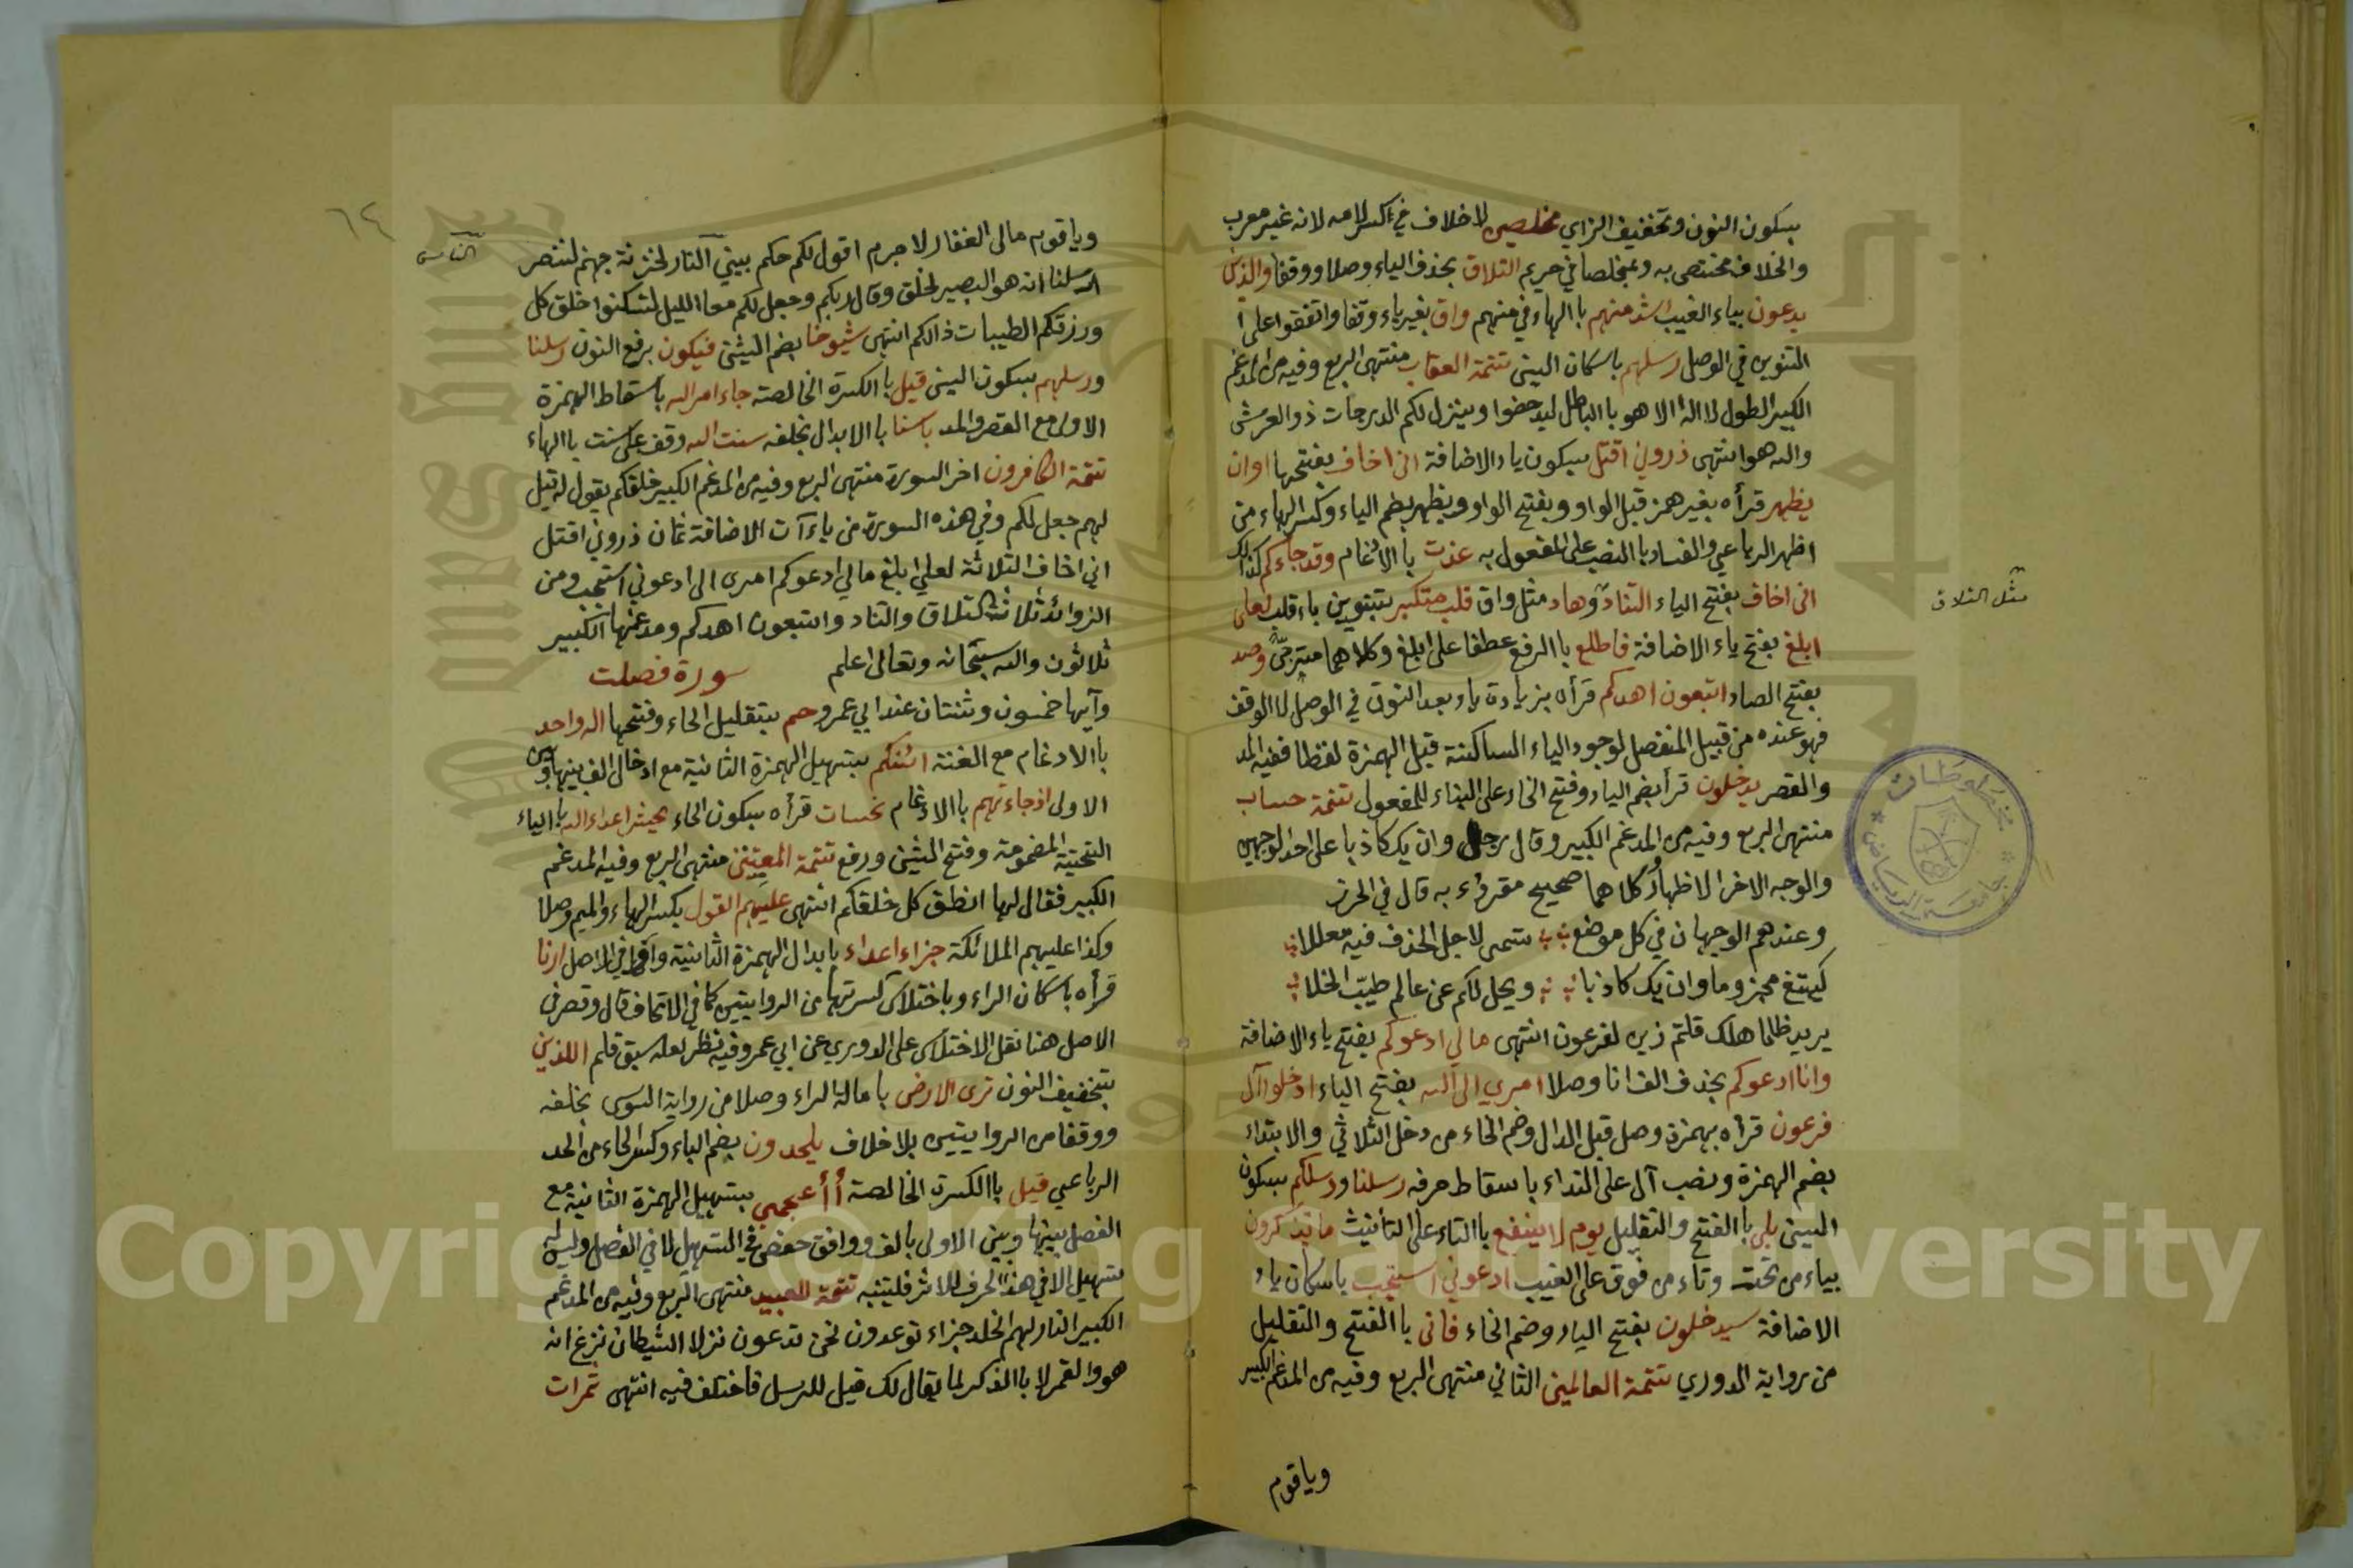 بسكون النون وتخفيف الزاي مخلصين لا خلاف في كسر لامه لانه غير معرب
والخلاف مختص به ومخلصا في مريم التلاق بحذف الياء وصلا ووقفا والذين
يدعون بياء الغيب اشد منهم باالهاء في منهم واق بغير ياء وقفا واتفقوا على
التنوين في الوصل رسلهم باسكان السين تتمة العقاب منتهى الربع وفيه من المدغم
الكبير الطول لا اله الا هو باالباطل ليدحضوا وينزل لكم الدرجات ذو العرش
والله هو انتهى ذروني اقتل بسكون ياء الاضافة اني اخاف بفتحها او ان
يظهر قرأه بغير همز قبل الواو وبفتح الواو ويظهر بضم الياء وكسر الهاء من
اظهر الرباعي والفساد باالنصب على المفعول به عذت باالادغام وقد جاءكم كذلك
اني اخاف بفتح الياء التناد وهاد مثل واق قلب متكبر بتنوين باا قلب لعلي
ابلغ بفتح ياء الاضافة فاطلع باالرفع عطفا على ابلغ وكلاهما مترجى وصد
بفتح الصاد اتبعون اهدكم قرأه بزيادة ياء بعد النون في الوصل لا الوقف
فهو عنده من قبيل المنفصل لوجود الياء الساكنة قبل الهمزة لفظا ففيه المد
والقصر يدخلون قرأ بضم الياء وفتح الخاء على البناء للمفعول تتمة حساب
منتهى الربع وفيه من المدغم الكبير وقال رجل وان يك كاذبا على احد الوجهين
والوجه الاخر الاظهار وكلاهما صحيح مقروء به قال في الحرز
وعندهم الوجهان في كل موضع تسمى لاجل الحذف فيه معللا
كيبتغ مجزوما وان يك كاذبا ويحل لكم عن عالم طيب الخلا
يريد ظلما هلك قلتم زين لفرعون انتهى مالي ادعوكم بفتح ياء الاضافة
وانا ادعوكم بحذف الف انا وصلا امري الى الله بفتح الياء ادخلوا آل
فرعون قرأه بهمزة وصل قبل الدال وضم الخاء من دخل الثلاثي والابتداء
بضم الهمزة ونصب آل على النداء باسقاط حرفه رسلنا ورسلكم بسكون
السين بلى باالفتح والتقليل يوم لا ينفع باالتاء على التأنيث ما تتذكرون
بياء من تحت وتاء من فوق على الغيب ادعوني استجب باسكان ياء
الاضافة سيدخلون بفتح الياء وضم الخاء فانى باالفتح والتقليل
من رواية الدوري تتمة العالمين الثاني منتهى الربع وفيه من المدغم الكبير
وياقوم
مثل التلاق
٦٤
وياقوم مالي الغفار لا جرم اقول لكم حكم بين النار لخزنة جهنم لننصر
رسلنا انه هو البصير لخلق وقال ربكم وجعل لكم معا الليل لتسكنوا خلق كل
ورزقكم الطيبات ذالكم انتهى شيوخا بضم الشين فيكون برفع النون رسلنا
ورسلهم بسكون السين قيل باالكسرة الخالصة جاء امر الله باسقاط الهمزة
الاولى مع القصر والمد باسنا باالابدال بخلفه سنت الله وقف على سنت باالهاء
تتمة الكافرون اخر السورة منتهى الربع وفيه من المدغم الكبير خلقكم يقول له قيل
لهم جعل لكم وفي هذه السورة من ياءآت الاضافة ثمان ذروني اقتل
اني اخاف الثلاثة لعلي ابلغ مالي ادعوكم امري الى ادعوني استجب ومن
الزوائد ثلاثة التلاق والتناد واتبعون اهدكم ومدغمها الكبير
ثلاثون والله سبحانه وتعالى اعلم سورة فصلت
وآيها خمسون وثنتان عند ابي عمرو حم بتقليل الحاء وفتحها اله واحد
باالادغام مع الغنة ائنكم بتسهيل الهمزة الثانية مع ادخال الف بينها وبين
الاولى اذ جاءتهم باالادغام نحسات قرأه بسكون الحاء يحشر اعداء الله باالياء
التحتية المضمومة وفتح الشين ورفع تتمة المعتبين منتهى الربع وفيه المدغم
الكبير فقال لها انطق كل خلقكم انتهى عليهم القول بكسر الهاء والميم وصلا
وكذا عليهم الملائكة جزاء اعداء بابدال الهمزة الثانية واوا في الاصل ارنا
قرأه باسكان الراء وباختلاس كسرتها من الروايتين كما في الاتحاف قال وقصر في
الاصل هنا نقل الاختلاس على الدوري عن ابي عمرو وفيه نظر لعله سبق قلم اللذين
بتخفيف النون ترى الارض بامالة الراء وصلا من رواية السوسي بخلفه
ووقفا من الروايتين بلا خلاف يلحدون بضم الياء وكسر الحاء من الحد
الرباعي قيل باالكسرة الخالصة أأعجمي بتسهيل الهمزة الثانية مع
الفصل بينها وبين الاولى بالف ووافق حفص في التسهيل لا في الفصل وليس له
تسهيل الا في هذا الحرف للاثر فليتنبه تتمة للعبيد منتهى الربع وفيه من المدغم
الكبير النار لهم الخلد جزاء توعدون نحن تدعون نزلا الشيطان نزغ انه
هو والقمر لا باالذكر لما يقال لك قيل للرسل فاختلف فيه انتهى ثمرات
Copyright © King Saud University